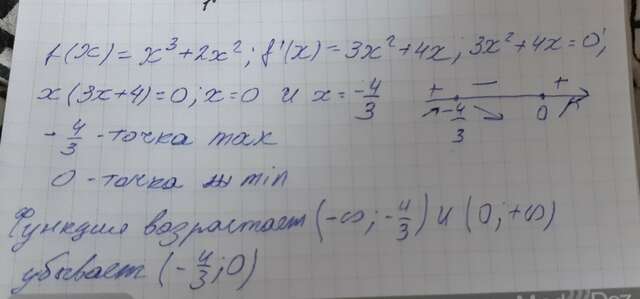 f(x) = x³+2x²; f'(x)=3x²+4x; 3x²+4x=0;
x(3x+4)=0; x=0 и x=-4/3
+ − +
-4/3 0
-4/3 - точка max
0 - точка min
Функция возрастает (-∞; -4/3) и (0; +∞)
убывает (-4/3; 0)